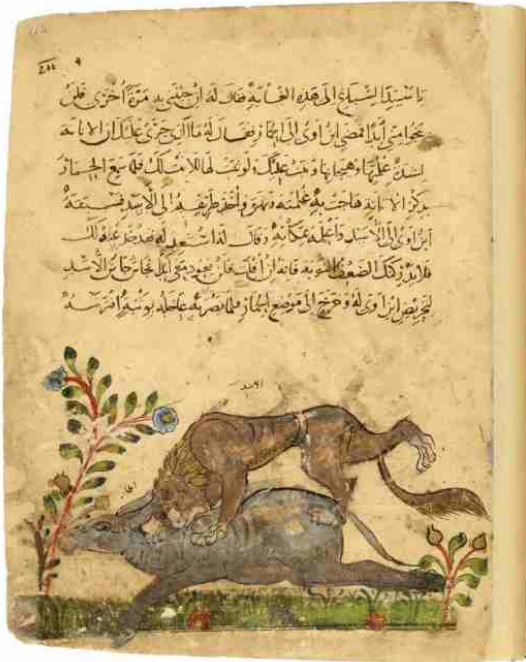 الى هذه الغاية فقال له ان جئتني به مرة اخرى فلن
ينجو مني ابدا فمضى ابن اوى الى الحمار فقال له ما الذي جرى عليك ان الاتانة
لشدة غلمتها وهيجانها وثبت عليك ولو ثبت لها للانت لك فلما سمع الحمار
بذكر الاتانة هاجت به غلمته ونهق واخذ طريقه الى الاسد فسبقه
ابن اوى الى الاسد واعلمه بمكانه وقال له استعد له فقد خدعته لك
فلا يدركنك الضعف فانه ان افلت فلن يعود معي ابدا فجاش جاش الاسد
لتحريض ابن اوى له وخرج الى موضع الحمار فلما بصر به عاجله بوثبة افترسه
الاسد
الحمار